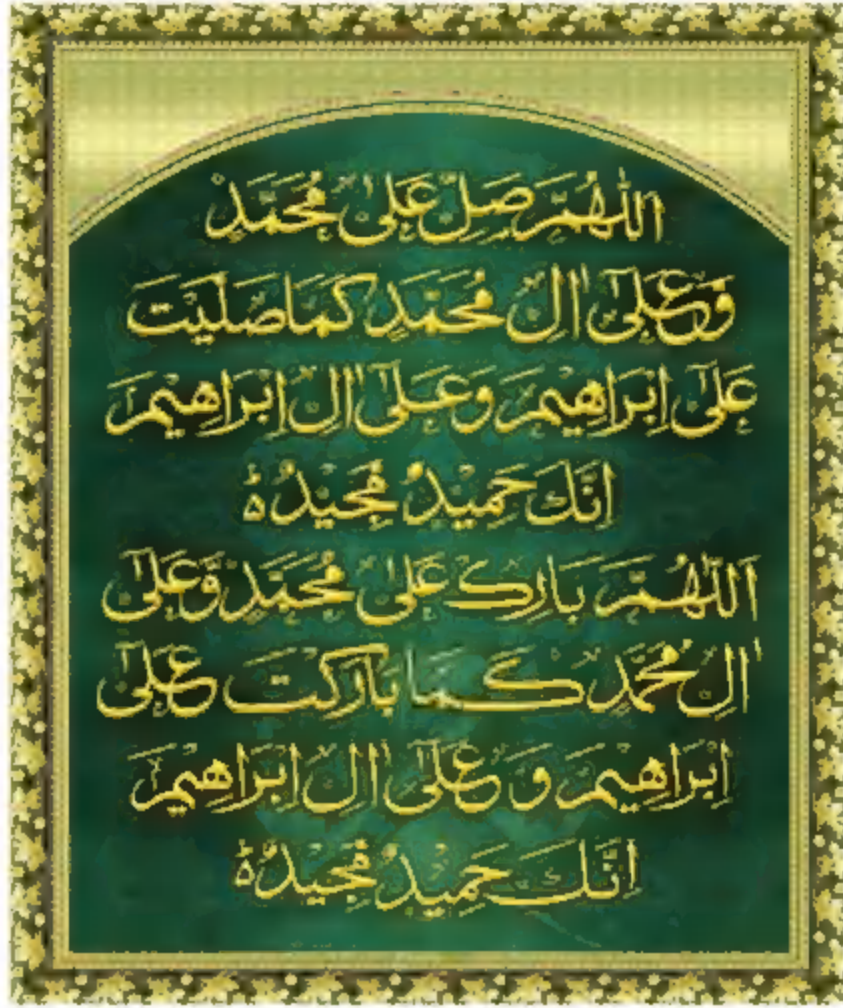 اَللّٰهُمَّ صَلِّ عَلٰى مُحَمَّدٍ
وَّعَلٰٓى اٰلِ مُحَمَّدٍ كَمَا صَلَّيْتَ
عَلٰٓى اِبْرَاهِيْمَ وَعَلٰٓى اٰلِ اِبْرَاهِيْمَ
اِنَّكَ حَمِيْدٌ مَّجِيْدٌ ۃ
اَللّٰهُمَّ بَارِكْ عَلٰى مُحَمَّدٍ وَّعَلٰٓى
اٰلِ مُحَمَّدٍ كَمَا بَارَكْتَ عَلٰٓى
اِبْرَاهِيْمَ وَ عَلٰٓى اٰلِ اِبْرَاهِيْمَ
اِنَّكَ حَمِيْدٌ مَّجِيْدٌ ۃ